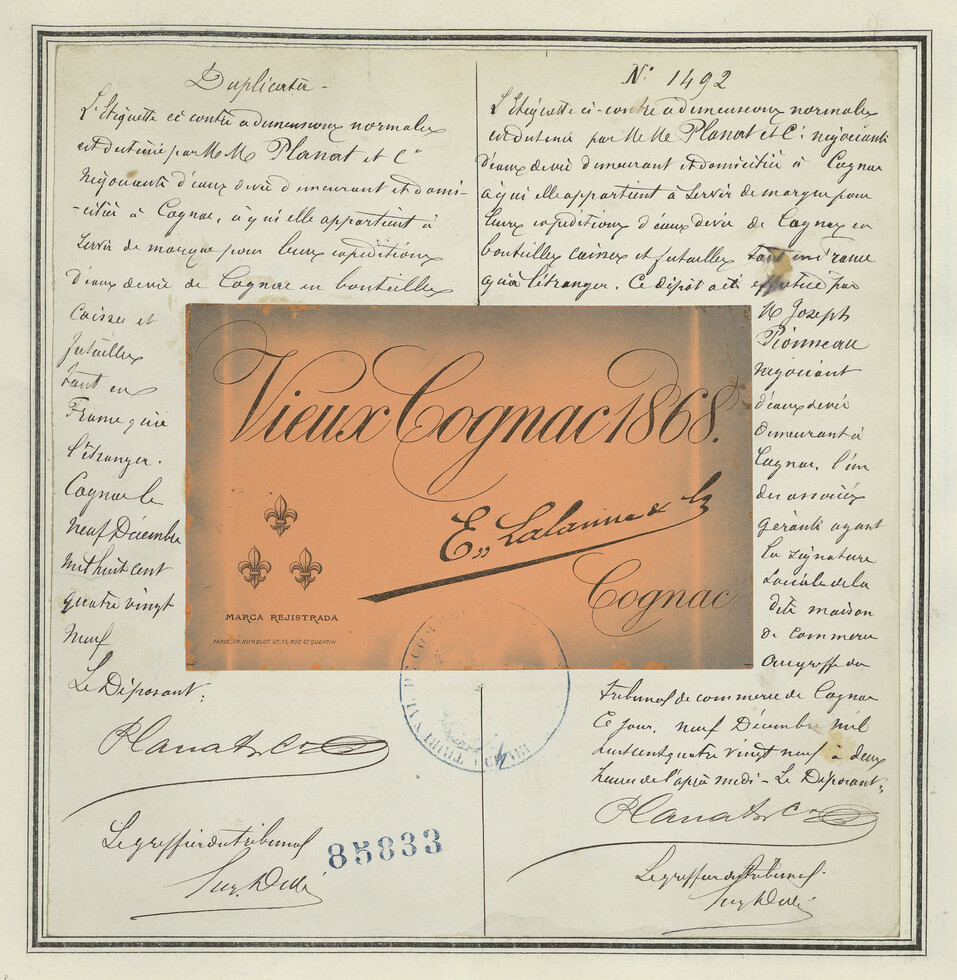 Duplicata -
L'Etiquette ci contre a dimensions normales
est destinée par MM Planat et Cie
négociants d'eaux de vie demeurant et domi-
-ciliés à Cognac, à qui elle appartient à
servir de marque pour leurs expéditions
d'eaux de vie de Cognac en bouteilles
caisses et
futailles
tant en
France qu'à
l'étranger.
Cognac le
neuf Décembre
mil huit cent
quatre vingt
neuf
Le Déposant:
Planat & Co
Le greffier du tribunal
85833
No 1492
L'Etiquette ci-contre a dimensions normales
est destinée par MM Planat et Cie négociants
d'eaux de vie demeurant et domiciliés à Cognac
à qui elle appartient à servir de marque pour
leurs expéditions d'eaux de vie de Cognac en
bouteilles caisses et futailles tant en France
qu'à l'étranger. Ce dépôt a été effectué par
M Joseph
Pionneau
négociant
d'eaux de vie
demeurant à
Cognac, l'un
des associés
gérants ayant
la signature
sociale de la
dite maison
de commerce
au greffe du
tribunal de commerce de Cognac
Ce jour, neuf Décembre mil
huit cent quatre vingt neuf à deux
heures de l'après midi - Le Déposant:
Planat & Co
Le greffier du tribunal.
Vieux Cognac 1868.
E. Lalanne & Co
Cognac
MARCA REJISTRADA
PARIS, CH. HUMBLOT Gr. 13, RUE St QUENTIN